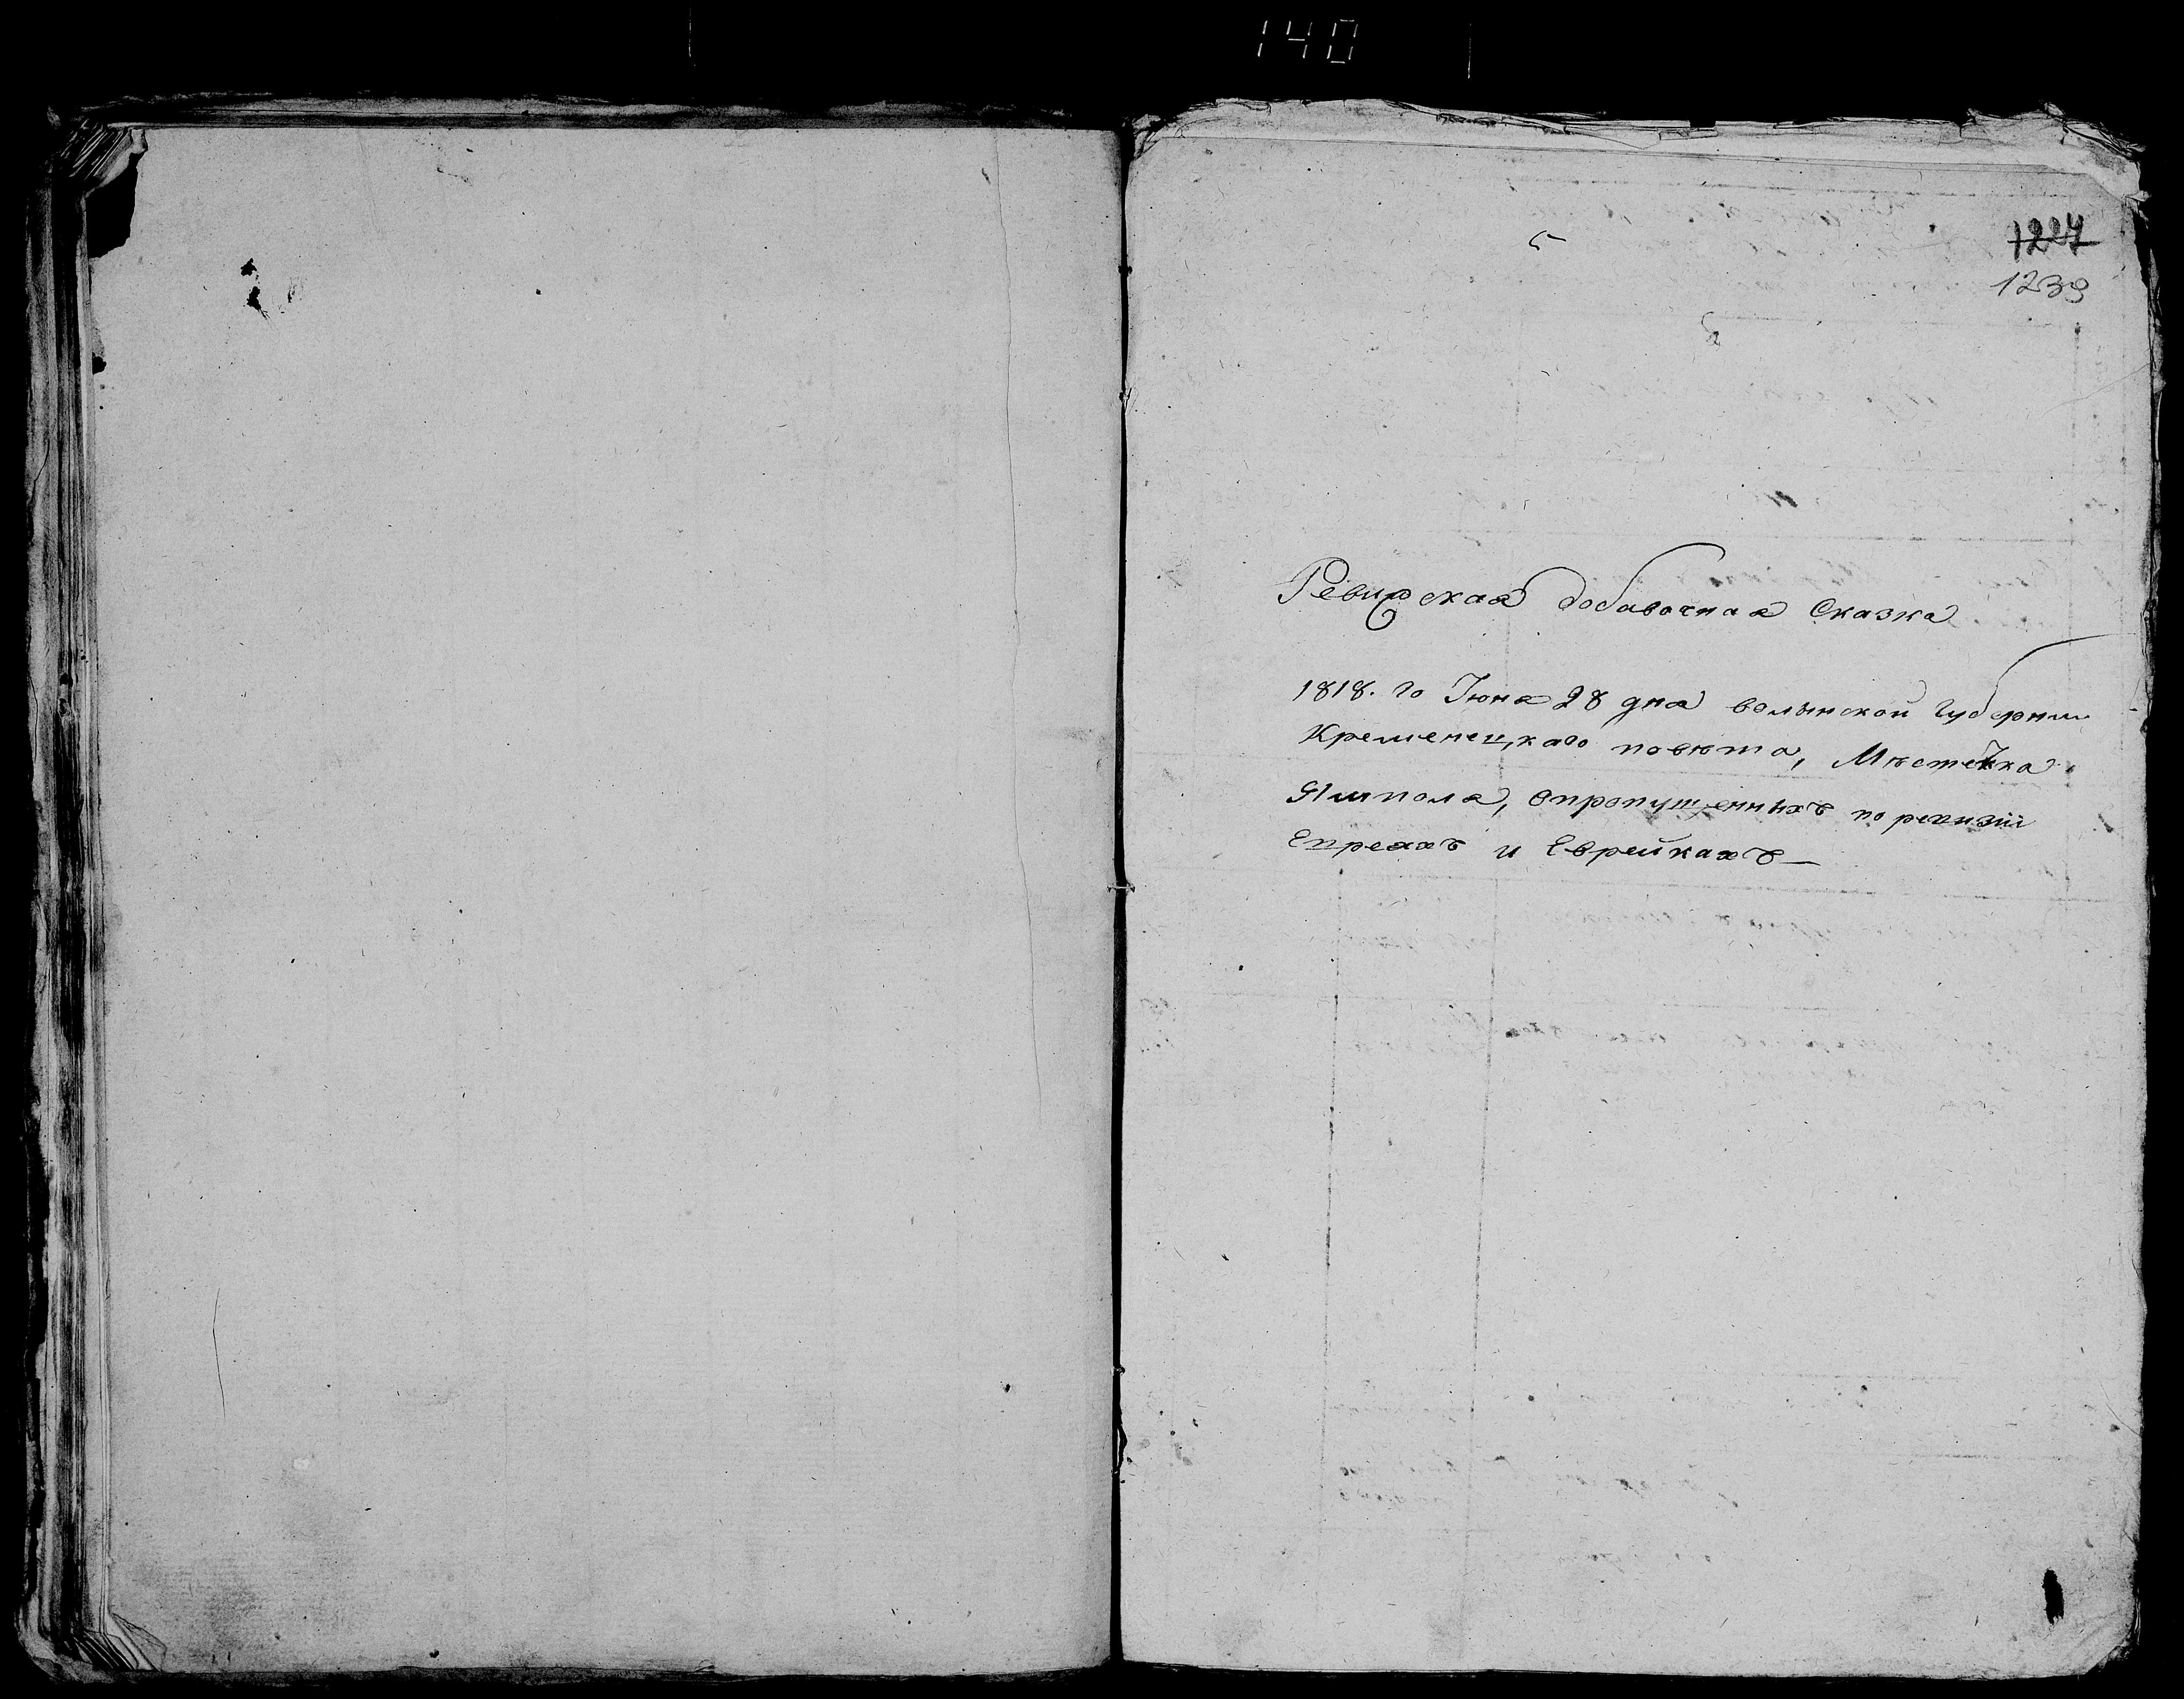 140
1227
1239
Ревизская добавочная Сказка
1818. го Июня 28 дня волынской губернии
Кременецкаго повѣта, Мѣстечка
Ямпола, опропущенныхъ по ревизіи
Евреяхъ и Еврейкахъ